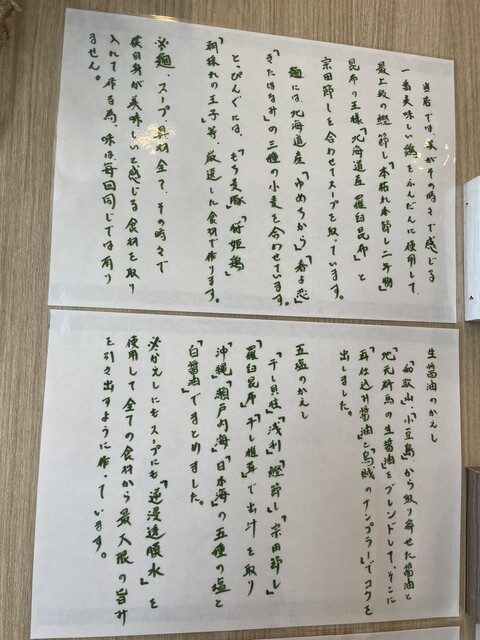 当店では、がその時々で感じる
一番美味しい鶏をふんだんに使用して、
最上級の鰹節し「本枯れ本節し二年物」
昆布の王様「北海道産羅臼昆布」と
宗田節しを合わせてスープを取っています。
麺には、北海道産「ゆめちから」「春よ恋」
「きたほなみ」の三種の小麦を合わせています。
とっぴんぐには、「もち麦豚」
「朝採れの王子」等、厳選した食材で作ります。
※麺、スープ、具材全て、その時々で
自身が美味しいと感じる食材を取り
入れて作る為、味は毎回同じでは有り
ません。
生醤油のかえし
「和歌山、小豆島」から取り寄せた醤油と
「地元群馬の生醤油」をブレンドして、そこに
「再仕込み醤油」と「烏賊のナンプラー」でコクを
出しました。
五塩のかえし
「干し貝柱」「浅利」「鰹節し」「宗田節し」
「羅臼昆布」「干し椎茸」で出汁を取り
「沖縄」「瀬戸内海」「日本海」の五種の塩と
「白醤油」でまとめました。
※かえしにもスープにも「逆浸透膜水」を
使用して全ての食材から最大限の旨み
を引き出すように作っています。